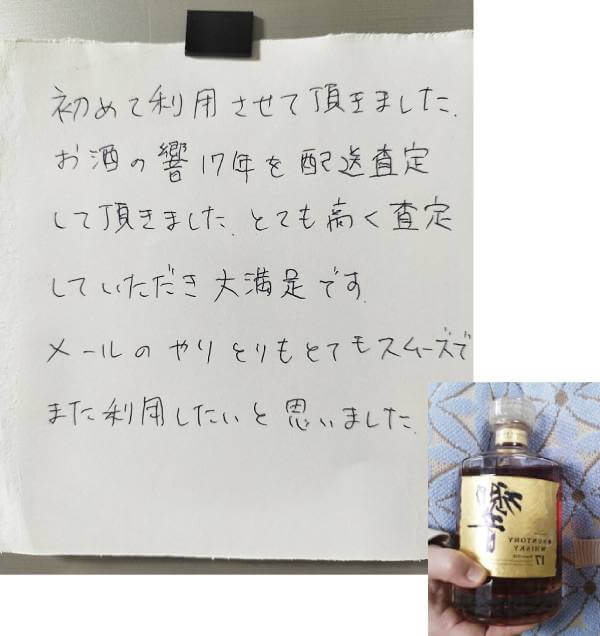 初めて利用させて頂きました.
お酒の響17年を配送査定
して頂きました. とても高く査定
していただき大満足です.
メールのやりとりもとてもスムーズで
また利用したいと思いました.
響
SUNTORY
WHISKY
17